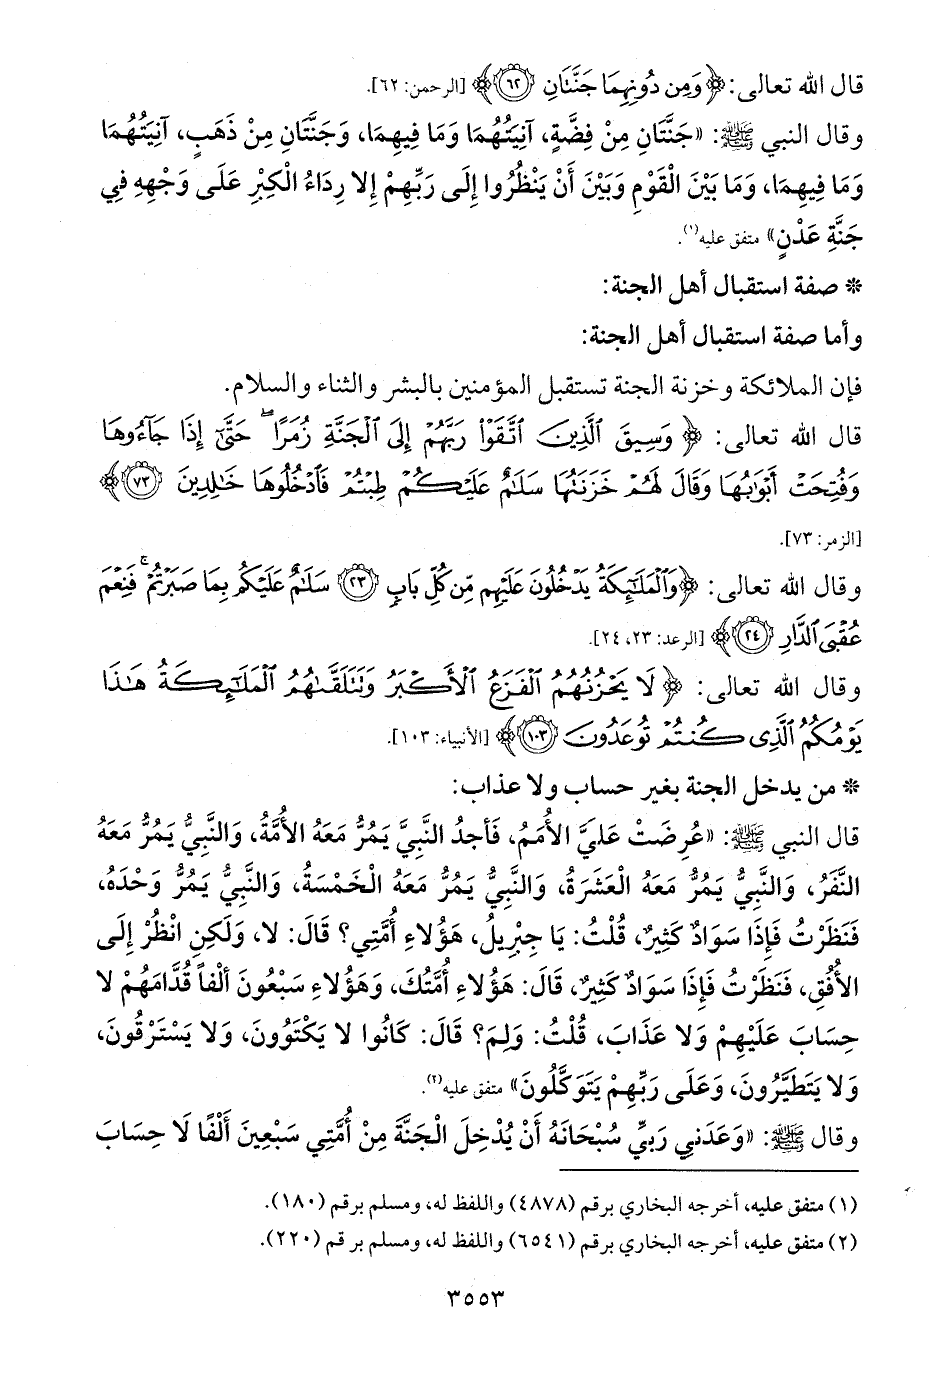 قال الله تعالى: ﴿وَمِن دُونِهِمَا جَنَّتَانِ ٦٢﴾ [الرحمن: ٦٢].
وقال النبي ﷺ: «جَنَّتَانِ مِنْ فِضَّةٍ، آنِيَتُهُمَا وَمَا فِيهِمَا، وَجَنَّتَانِ مِنْ ذَهَبٍ، آنِيَتُهُمَا
وَمَا فِيهِمَا، وَمَا بَيْنَ الْقَوْمِ وَبَيْنَ أَنْ يَنْظُرُوا إِلَى رَبِّهِمْ إِلا رِدَاءُ الْكِبْرِ عَلَى وَجْهِهِ فِي
جَنَّةِ عَدْنٍ» متفق عليه(١).
* صفة استقبال أهل الجنة:
وأما صفة استقبال أهل الجنة:
فإن الملائكة وخزنة الجنة تستقبل المؤمنين بالبشر والثناء والسلام.
قال الله تعالى: ﴿وَسِيقَ ٱلَّذِينَ ٱتَّقَوْا۟ رَبَّهُمْ إِلَى ٱلْجَنَّةِ زُمَرًا ۖ حَتَّىٰٓ إِذَا جَآءُوهَا
وَفُتِحَتْ أَبْوَٰبُهَا وَقَالَ لَهُمْ خَزَنَتُهَا سَلَٰمٌ عَلَيْكُمْ طِبْتُمْ فَٱدْخُلُوهَا خَٰلِدِينَ ٧٣﴾
[الزمر: ٧٣].
وقال الله تعالى: ﴿وَٱلْمَلَٰٓئِكَةُ يَدْخُلُونَ عَلَيْهِم مِّن كُلِّ بَابٍ ٢٣ سَلَٰمٌ عَلَيْكُم بِمَا صَبَرْتُمْ ۚ فَنِعْمَ
عُقْبَى ٱلدَّارِ ٢٤﴾ [الرعد: ٢٣، ٢٤].
وقال الله تعالى: ﴿لَا يَحْزُنُهُمُ ٱلْفَزَعُ ٱلْأَكْبَرُ وَتَتَلَقَّىٰهُمُ ٱلْمَلَٰٓئِكَةُ هَٰذَا
يَوْمُكُمُ ٱلَّذِى كُنتُمْ تُوعَدُونَ ١٠٣﴾ [الأنبياء: ١٠٣].
* من يدخل الجنة بغير حساب ولا عذاب:
قال النبي ﷺ: «عُرِضَتْ عَلَيَّ الأُمَمُ، فَأَجِدُ النَّبِيَّ يَمُرُّ مَعَهُ الأُمَّةُ، وَالنَّبِيُّ يَمُرُّ مَعَهُ
النَّفَرُ، وَالنَّبِيُّ يَمُرُّ مَعَهُ الْعَشَرَةُ، وَالنَّبِيُّ يَمُرُّ مَعَهُ الْخَمْسَةُ، وَالنَّبِيُّ يَمُرُّ وَحْدَهُ،
فَنَظَرْتُ فَإِذَا سَوَادٌ كَثِيرٌ، قُلْتُ: يَا جِبْرِيلُ، هَؤُلاءِ أُمَّتِي؟ قَالَ: لا، وَلَكِنِ انْظُرْ إِلَى
الأُفُقِ، فَنَظَرْتُ فَإِذَا سَوَادٌ كَثِيرٌ، قَالَ: هَؤُلاءِ أُمَّتُكَ، وَهَؤُلاءِ سَبْعُونَ أَلْفاً قُدَّامَهُمْ لا
حِسَابَ عَلَيْهِمْ وَلا عَذَابَ، قُلْتُ: وَلِمَ؟ قَالَ: كَانُوا لا يَكْتَوُونَ، وَلا يَسْتَرْقُونَ،
وَلا يَتَطَيَّرُونَ، وَعَلَى رَبِّهِمْ يَتَوَكَّلُونَ» متفق عليه(٢).
وقال ﷺ: «وَعَدَنِي رَبِّي سُبْحَانَهُ أَنْ يُدْخِلَ الْجَنَّةَ مِنْ أُمَّتِي سَبْعِينَ أَلْفًا لَا حِسَابَ
(١) متفق عليه، أخرجه البخاري برقم (٤٨٧٨) واللفظ له، ومسلم برقم (١٨٠).
(٢) متفق عليه، أخرجه البخاري برقم (٦٥٤١) واللفظ له، ومسلم برقم (٢٢٠).
٣٥٥٣